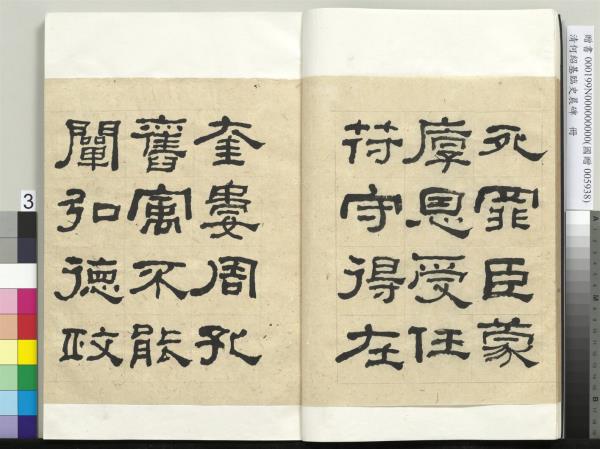 贈書 000199N000000000(國贈 005938)
清何紹基臨史晨碑 冊
死罪臣蒙
厚恩受任
苻守得在
奎婁周孔
舊寓不能
闡弘德政
3
A
M
B